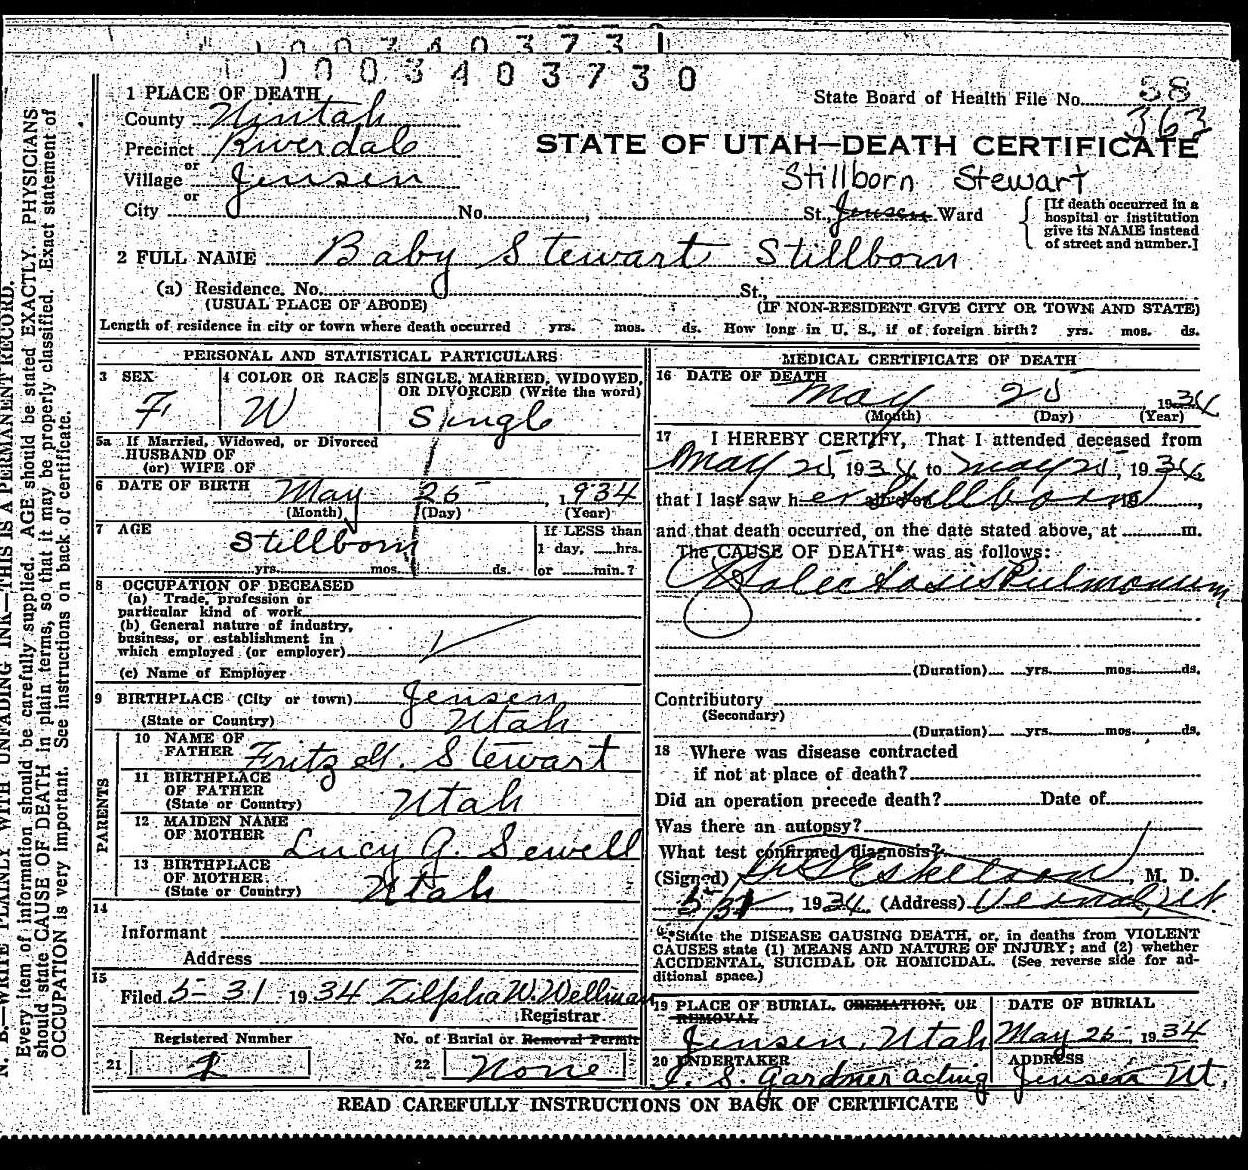 1003403730
1 PLACE OF DEATH
County Uintah
Precinct Riverdale
or
Village Jensen
or
City No. St., Jensen Ward
State Board of Health File No. 88
363
STATE OF UTAH—DEATH CERTIFICATE
Stillborn Stewart
{ [If death occurred in a
hospital or institution
give its NAME instead
of street and number.]
2 FULL NAME Baby Stewart Stillborn
(a) Residence. No. St.,
(USUAL PLACE OF ABODE) (IF NON-RESIDENT GIVE CITY OR TOWN AND STATE)
Length of residence in city or town where death occurred yrs. mos. ds. How long in U. S., if of foreign birth? yrs. mos. ds.
PERSONAL AND STATISTICAL PARTICULARS
3 SEX
F
4 COLOR OR RACE
W
5 SINGLE, MARRIED, WIDOWED,
OR DIVORCED (Write the word)
Single
5a If Married, Widowed, or Divorced
HUSBAND OF
(or) WIFE OF
6 DATE OF BIRTH May 25, 1934
(Month) (Day) (Year)
7 AGE Stillborn
yrs. mos. ds.
If LESS than
1 day, hrs.
or min.?
8 OCCUPATION OF DECEASED
(a) Trade, profession or
particular kind of work
(b) General nature of industry,
business, or establishment in
which employed (or employer)
(c) Name of Employer
9 BIRTHPLACE (City or town) Jensen
(State or Country) Utah
PARENTS
10 NAME OF
FATHER Fritz G. Stewart
11 BIRTHPLACE
OF FATHER
(State or Country) Utah
12 MAIDEN NAME
OF MOTHER Lucy A. Sewell
13 BIRTHPLACE
OF MOTHER
(State or Country) Utah
14
Informant
Address
15
Filed 5-31 1934 Zilpha W. Wellman
Registrar
Registered Number
21
No. of Burial or Removal Permit
22 None
MEDICAL CERTIFICATE OF DEATH
16 DATE OF DEATH
May 25 1934
(Month) (Day) (Year)
17 I HEREBY CERTIFY, That I attended deceased from
May 25, 1934 to May 25, 1934
that I last saw her alive on Stillborn 19
and that death occurred, on the date stated above, at m.
The CAUSE OF DEATH* was as follows:
Atalectasis Pulmonum
(Duration) yrs. mos. ds.
Contributory
(Secondary)
(Duration) yrs. mos. ds.
18 Where was disease contracted
if not at place of death?
Did an operation precede death? Date of
Was there an autopsy?
What test confirmed diagnosis?
(Signed) Eskelson, M. D.
5/31, 1934. (Address) Vernal, Ut.
*State the DISEASE CAUSING DEATH, or, in deaths from VIOLENT
CAUSES state (1) MEANS AND NATURE OF INJURY; and (2) whether
ACCIDENTAL, SUICIDAL OR HOMICIDAL. (See reverse side for ad-
ditional space.)
19 PLACE OF BURIAL, CREMATION, OR
REMOVAL
Jensen, Utah
DATE OF BURIAL
May 26 1934
20 UNDERTAKER
I. S. Gardner acting
ADDRESS
Jensen Ut.
READ CAREFULLY INSTRUCTIONS ON BACK OF CERTIFICATE
N. B.—WRITE PLAINLY WITH UNFADING INK—THIS IS A PERMANENT RECORD.
Every item of information should be carefully supplied. AGE should be stated EXACTLY. PHYSICIANS
should state CAUSE OF DEATH in plain terms, so that it may be properly classified. Exact statement of
OCCUPATION is very important. See instructions on back of certificate.